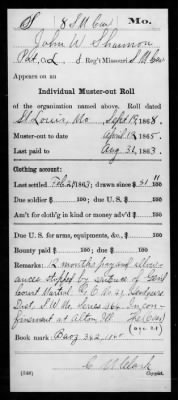 S | 8 S.M. Cav. | Mo.
John W. Shannon
Pvt., Co. L, 8 Reg't Missouri S.M. Cav.
Appears on an
Individual Muster-out Roll
of the organization named above. Roll dated
St. Louis, Mo. Sept. 19, 1868.
Muster-out to date April 12, 1865.
Last paid to Aug. 31, 1863.
Clothing account:
Last settled 1863; drawn since $ 100
Due soldier $ 100; due U.S. $ 100
Am't for cloth'g in kind or money adv'd $ 100
Due U.S. for arms, equipments, &c., $ 100
Bounty paid $ 100; due $ 100
Remarks: 12 months pay and allow-
ances stopped by sentence of Genl
Court Martial
Dist. S.W. Mo. Series 1864. In con-
finement at Alton Ill.
Book mark:
(348) Copyist.